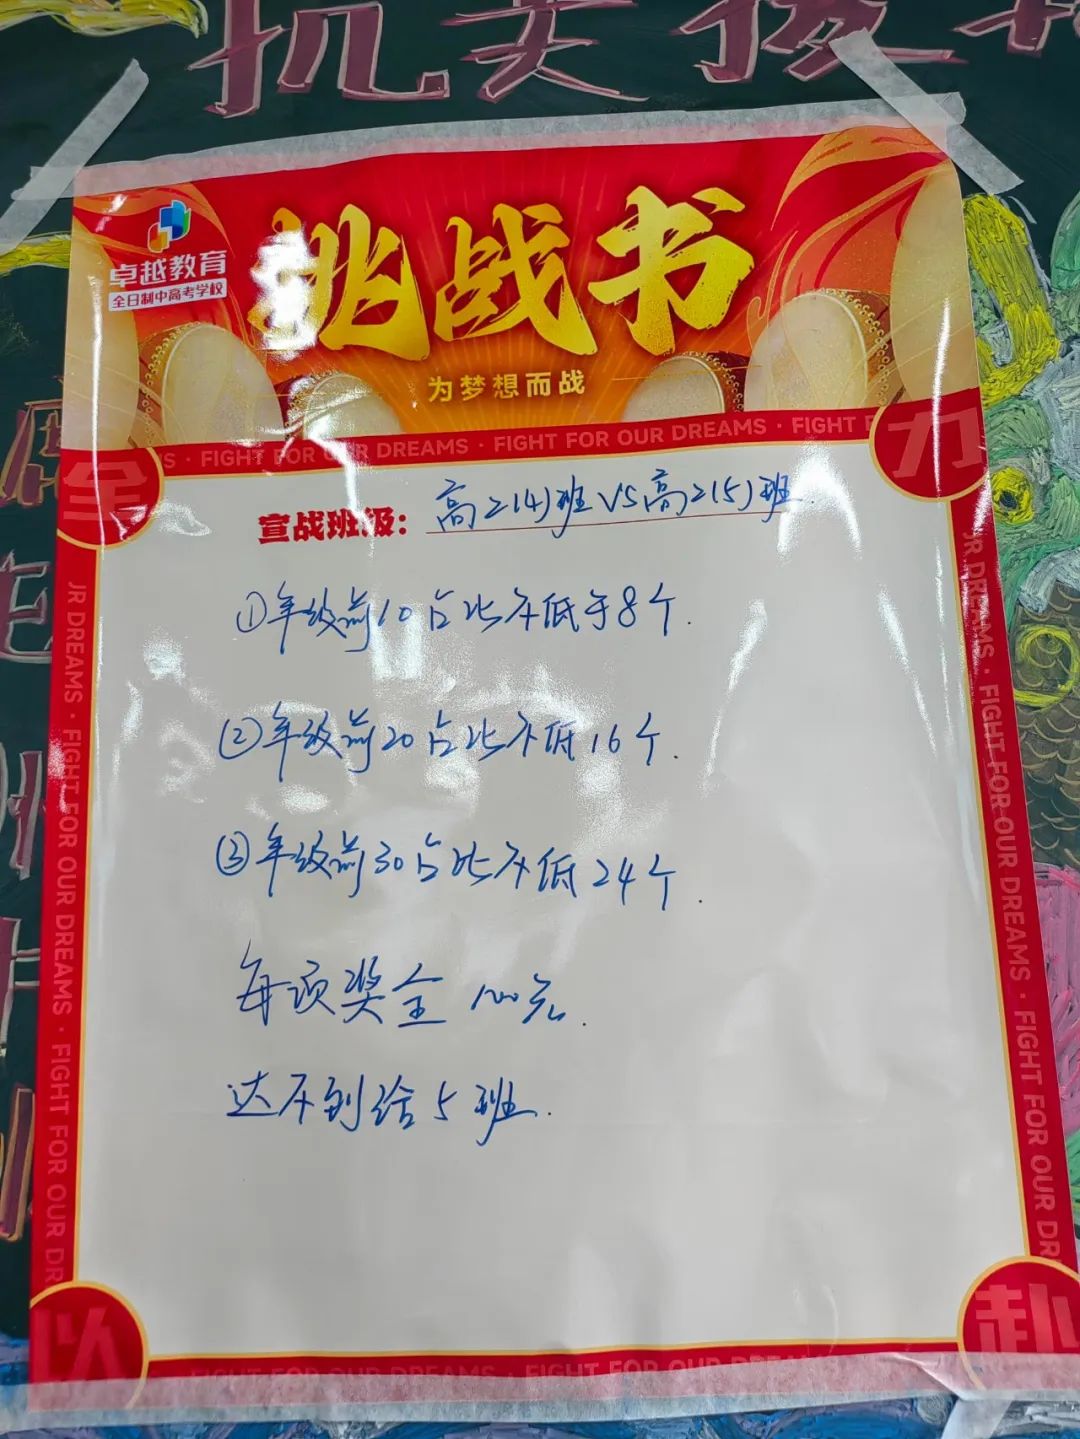 卓越教育
全日制中高考学校
挑战书
为梦想而战
S · FIGHT FOR OUR DREAMS · FIGHT FOR OUR DREAMS · FIGHT F
全
力
宣战班级：高2(4)班 VS 高2(5)班
①年级前10占比不低于8个.
②年级前20占比不低16个.
③年级前30占比不低24个.
每项奖金100元.
达不到给5班.
JR DREAMS · FIGHT FOR OUR DREAMS · FIGHT FOR OUR DR
JR DREAMS · FIGHT FOR OUR DREAMS · FIGHT FOR OUR DR
以
赴
FIGHT FOR OUR DREAMS